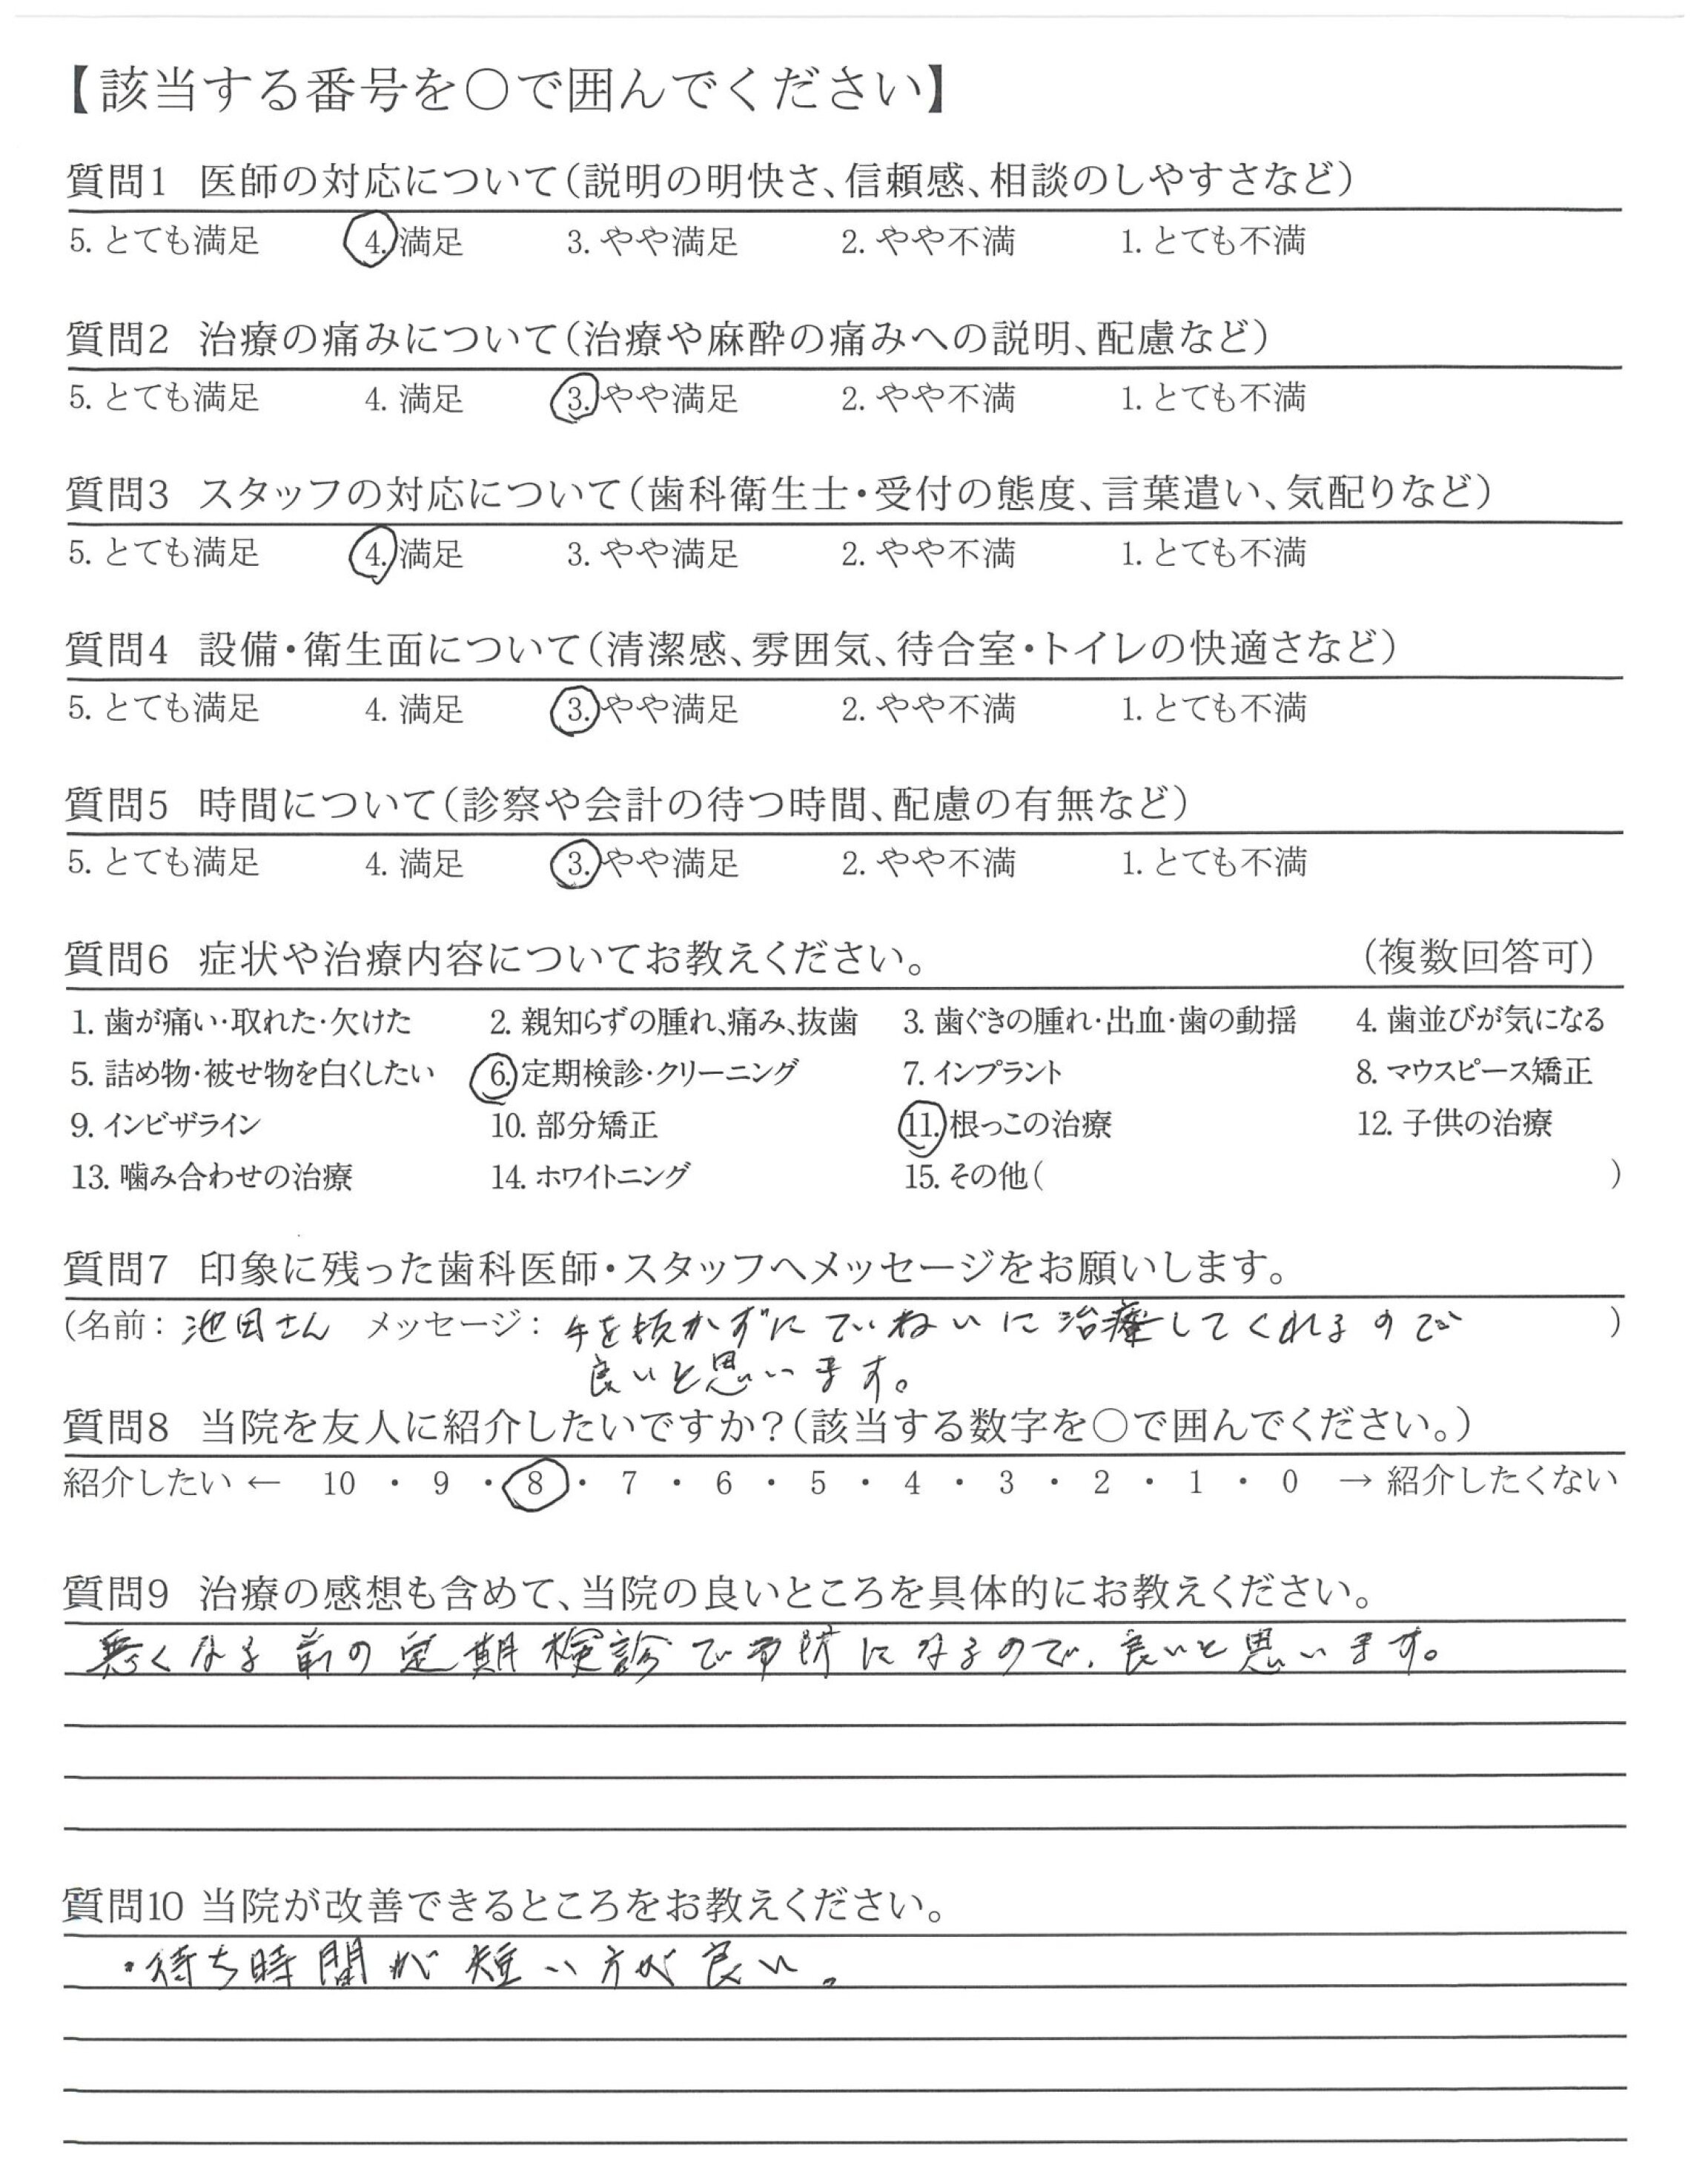 【該当する番号を○で囲んでください】
質問1 医師の対応について(説明の明快さ、信頼感、相談のしやすさなど)
5. とても満足 4. 満足 3. やや満足 2. やや不満 1. とても不満
質問2 治療の痛みについて(治療や麻酔の痛みへの説明、配慮など)
5. とても満足 4. 満足 3. やや満足 2. やや不満 1. とても不満
質問3 スタッフの対応について(歯科衛生士・受付の態度、言葉遣い、気配りなど)
5. とても満足 4. 満足 3. やや満足 2. やや不満 1. とても不満
質問4 設備・衛生面について(清潔感、雰囲気、待合室・トイレの快適さなど)
5. とても満足 4. 満足 3. やや満足 2. やや不満 1. とても不満
質問5 時間について(診察や会計の待つ時間、配慮の有無など)
5. とても満足 4. 満足 3. やや満足 2. やや不満 1. とても不満
質問6 症状や治療内容についてお教えください。 (複数回答可)
1. 歯が痛い・取れた・欠けた 2. 親知らずの腫れ、痛み、抜歯 3. 歯ぐきの腫れ・出血・歯の動揺 4. 歯並びが気になる
5. 詰め物・被せ物を白くしたい 6. 定期検診・クリーニング 7. インプラント 8. マウスピース矯正
9. インビザライン 10. 部分矯正 11. 根っこの治療 12. 子供の治療
13. 噛み合わせの治療 14. ホワイトニング 15. その他( )
質問7 印象に残った歯科医師・スタッフへメッセージをお願いします。
(名前: 池田さん メッセージ: 手を抜かずにていねいに治療してくれるので )
良いと思います。
質問8 当院を友人に紹介したいですか?(該当する数字を○で囲んでください。)
紹介したい ← 10 ・ 9 ・ 8 ・ 7 ・ 6 ・ 5 ・ 4 ・ 3 ・ 2 ・ 1 ・ 0 → 紹介したくない
質問9 治療の感想も含めて、当院の良いところを具体的にお教えください。
悪くなる前の定期検診で予防になるので、良いと思います。
質問10 当院が改善できるところをお教えください。
・待ち時間が短い方が良い。